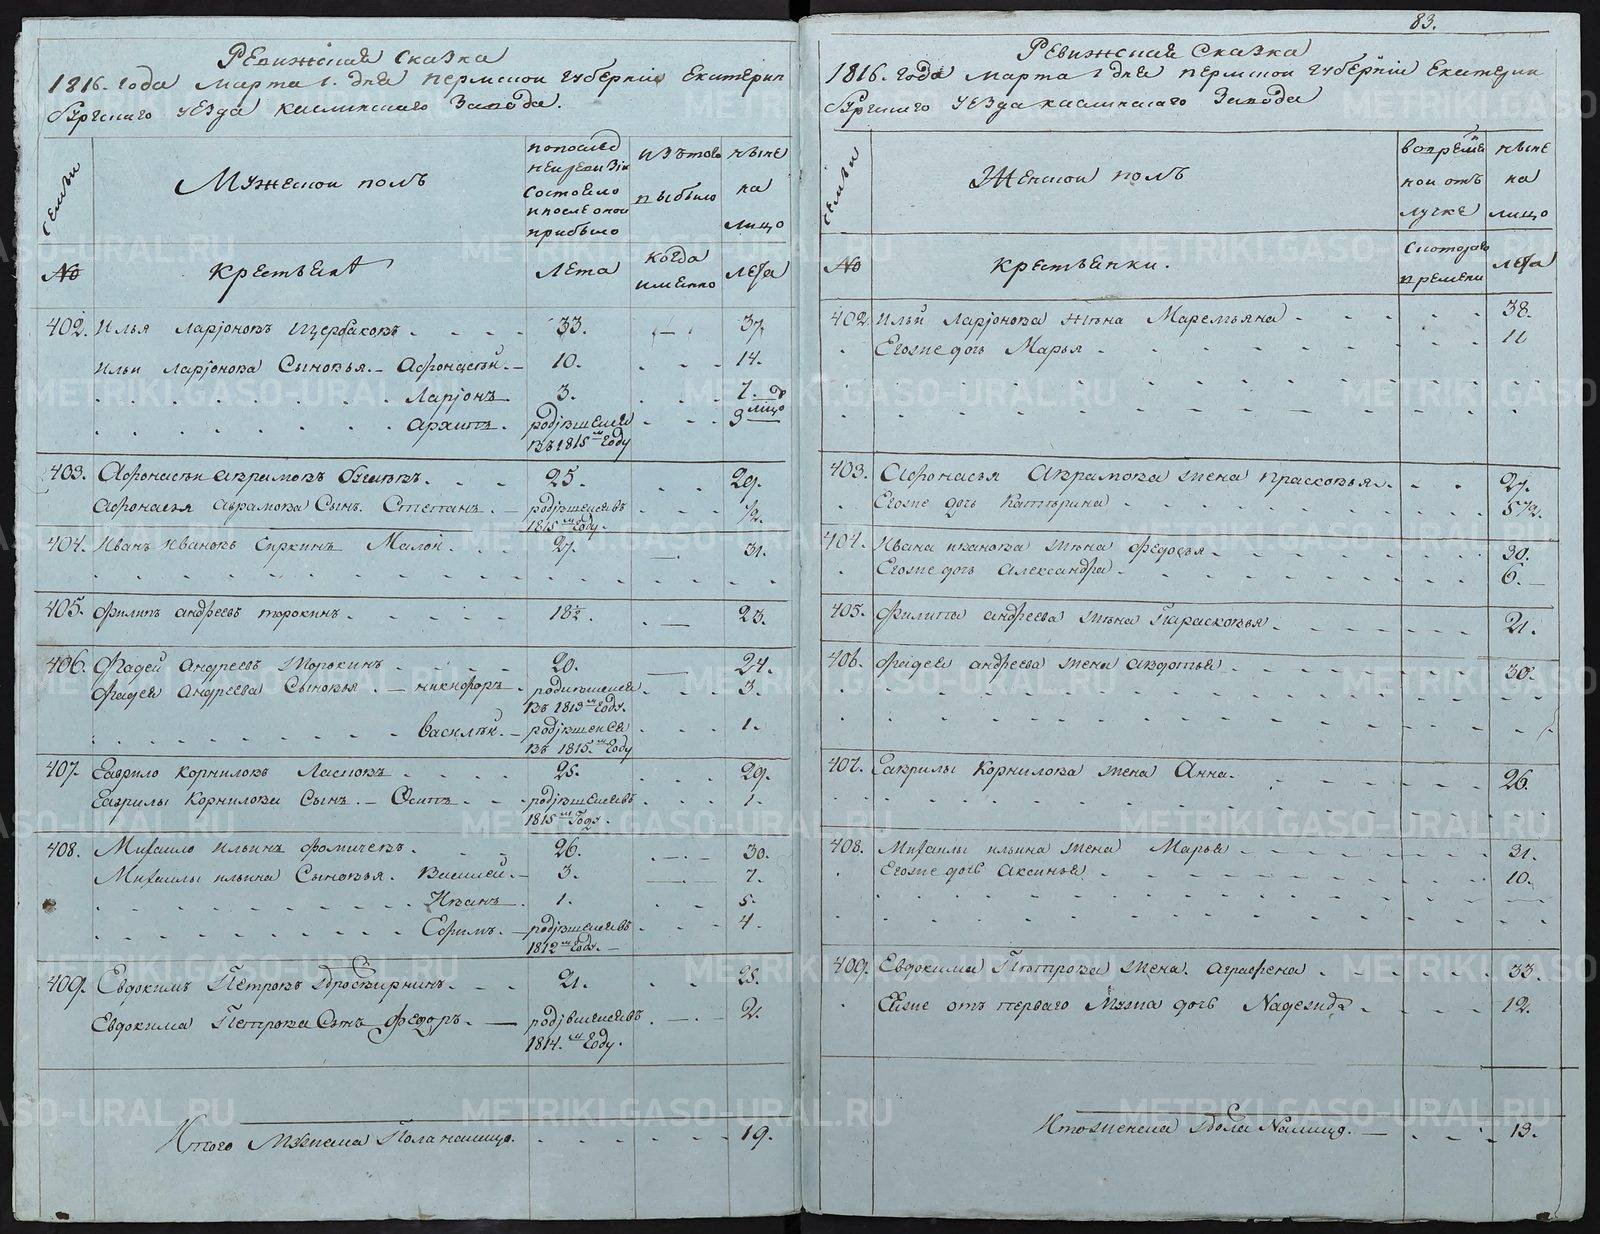 Ревижская Сказка
1816. года Марта 1. дня Пермской Губернiи Екатерин
бургскаго уезда каслинскаго Завода.
семьи
Мужескои полъ
попослед
ней ревизiи
состояло
и после оной
прибыло
изъ того
выбыло
ныне
на
лицо
№
крестьяня
Лета
когда
имянно
лета
402. Илья Ларiоновъ Щербаковъ 33. 37.
Ильи Ларiонова Сыновья. Афонасей. 10. 14.
Ларiонъ 3. 7.
Архипъ родившейся 9
лицо
въ 1815 м Году
403. Афонасеи Аврамовъ 25. 29.
Афонасья Аврамова Сынъ. Степанъ. родившейся въ 1/2.
1815 м Году.
404. Иванъ Ивановъ Сиркинъ Малои. 27. 31.
405. Филипъ андреевъ торокинъ 18 1/2. 23.
406. Фадей Андреевъ Торокинъ 20. 24.
Фадея Андреева Сыновья. никифоръ родившейся 3.
въ 1813 м Году.
Василей. родившейся 1.
въ 1815. м Году
407. Гаврило Корниловъ Ласковъ 25. 29.
Гаврилы Корнилова Сынъ. Осипъ родившейся въ 1.
1815 м Году.
408. Михаило Ильинъ Фомичевъ. 26. 30.
Михаилы ильина Сыновья. Василей. 3. 7.
Иванъ 1. 5.
Ефимъ. родившейся въ 4.
1812 м Году.
409. Евдокимъ Петровъ 21. 25.
Евдокима Петрова Сынъ Федоръ. родившейся въ 2.
1814. м Году.
Итого Мужеска Пола налицо. 19.
83.
Ревижская Сказка
1816. года Марта 1 дня Пермской Губернiи Екатерин
бургскаго уезда каслинскаго Завода
семьи
Женской полъ
во време
ной отъ
лучке
ныне
на
лицо
№
крестьянки.
с котораго
времени
лета
402. Ильи Ларiонова жена Маремъяна 38.
Егоже дочь Марья 11
403. Афонасья Аврамова жена прасковья. 27.
Егоже дочь Катерина 5 1/2.
404. Ивана иванова жена федосья 30.
Егоже дочь Александра 6.
405. Филипа андреева жена Парасковья 21.
406. Фадея андреева жена авдотья 30.
407. Гаврилы Корнилова жена Анна. 26.
408. Михаилы ильина жена Марья 31.
Егоже дочь Аксинья 10.
409. Евдокима Петрова жена. аграфена 33.
Ейже отъ перваго Мужа дочь Надежда 12.
Итого женска пола Налицо. 13.
METRIKI.GASO-URAL.RU